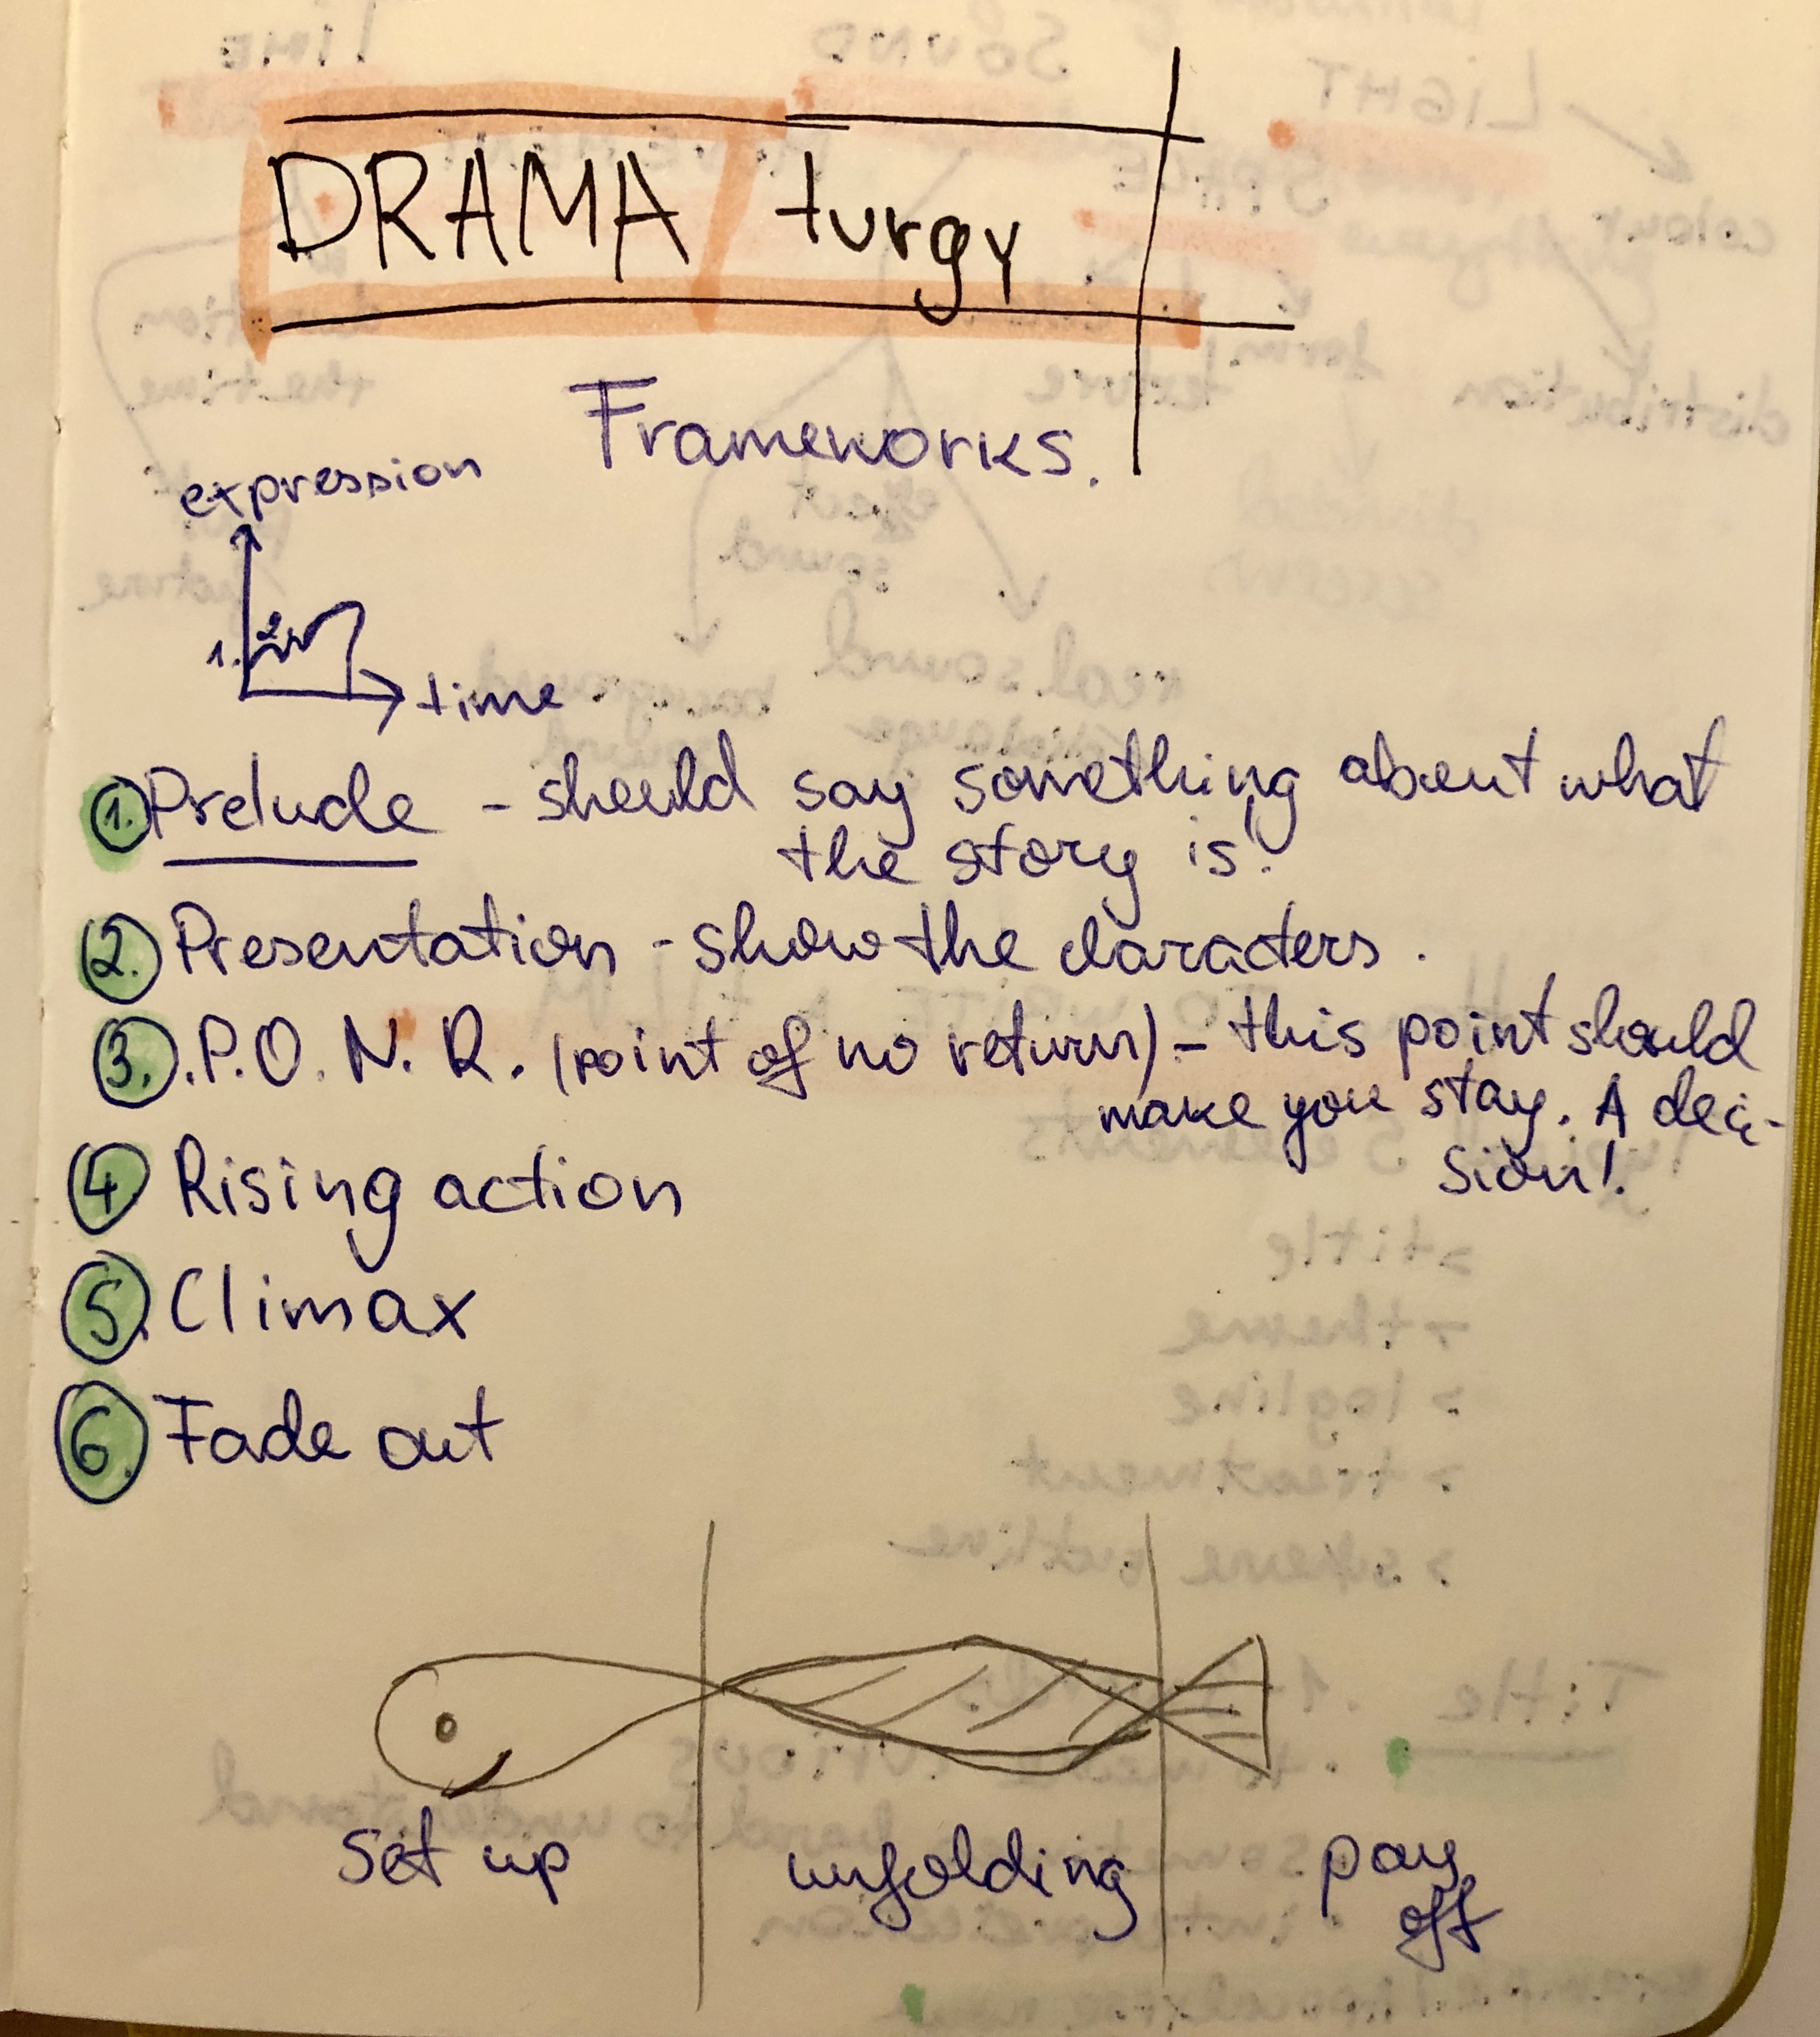 DRAMA turgy
Frameworks.
expression
1. 2.
time
1. Prelude - should say something about what
the story is!
2. Presentation - show the claracters.
3. P.O.N.R. (point of no return) - this point should
make you stay. A deci-
sion!
4 Rising action
5. Climax
6. Fade out
set up unfolding pay
off